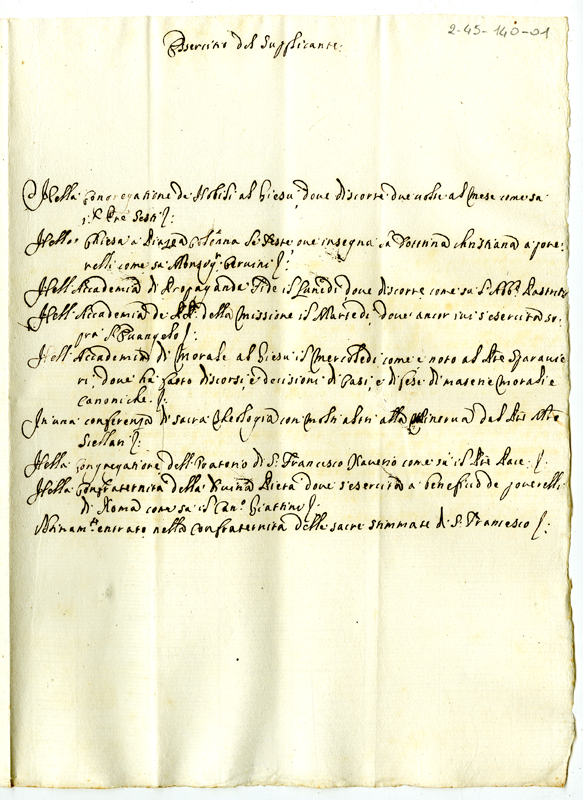 2-45-140-01
Esercitio del Supplicante:
Nella Congregatione de Nobili al Giesù, dove discorre due volte al Mese come sa
il Pre Sesti
Nella Chiesa a Piazza Colonna le Feste ove insegna la Dottrina Christiana a pove-
relli come sa Monsigr.
Nell'Accademia di Propaganda Fide il Lunedì dove discorre come sa l'Abb.
Nell'Accademia de della Missione il Martedì, dove ancor ivi s'esercita so-
pra l'Evangelo
Nell'Accademia di Morale al Giesù il Mercoledì come è noto al Pre Sparavie
ri, dove ha fatto discorsi, e decisioni di Casi, e difese di materie Morali e
Canoniche.
In una conferenza di sacra Theologia con molti altri alla Minerva del
Nella Congregatione dell'Oratorio di S. Francesco Xaverio come sa il Pre Pace:
Nella Confraternità della Divina Pietà dove s'esercita a beneficio de poverelli
di Roma come sa il Can.
entrato nella Confraternità delle sacre stimmate di S. Francesco